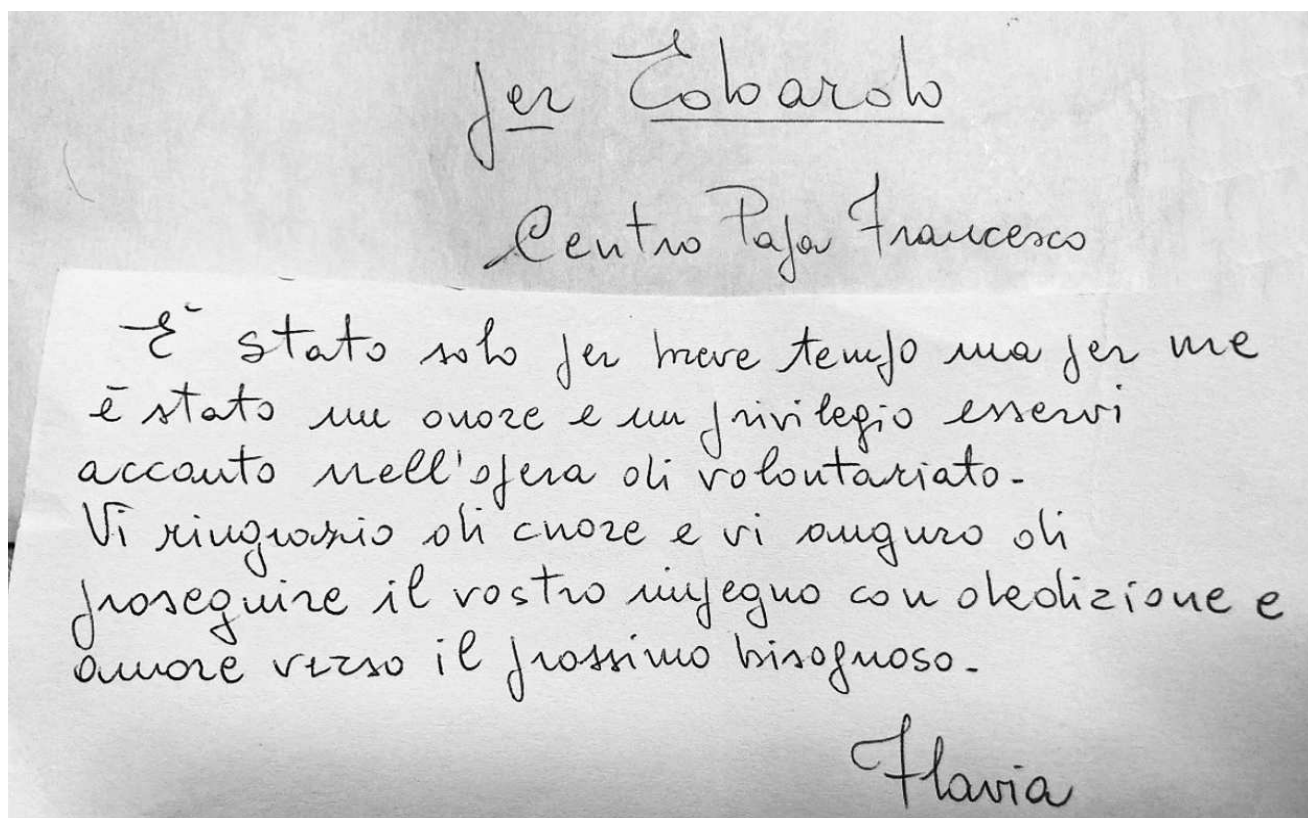 per Edoardo
Centro Papa Francesco
È stato solo per breve tempo ma per me
è stato un onore e un privilegio esservi
accanto nell'opera di volontariato.
Vi ringrazio di cuore e vi auguro di
proseguire il vostro impegno con dedizione e
amore verso il prossimo bisognoso.
Flavia